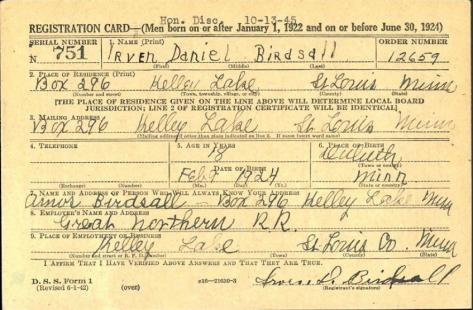 Hon. Disc. 10-13-45
REGISTRATION CARD—(Men born on or after January 1, 1922 and on or before June 30, 1924)
SERIAL NUMBER 1. NAME (Print) ORDER NUMBER
N 751 Irven Daniel Birdsall 12659
(First) (Middle) (Last)
2. PLACE OF RESIDENCE (Print)
Box 296 Kelley Lake St Louis Minn
(Number and street) (Town, township, village, or city) (County) (State)
[THE PLACE OF RESIDENCE GIVEN ON THE LINE ABOVE WILL DETERMINE LOCAL BOARD
JURISDICTION; LINE 2 OF REGISTRATION CERTIFICATE WILL BE IDENTICAL]
3. MAILING ADDRESS
Box 296 Kelley Lake St. Louis Minn
[Mailing address if other than place indicated on line 2. If same insert word same]
4. TELEPHONE 5. AGE IN YEARS 6. PLACE OF BIRTH
18 Duluth
DATE OF BIRTH (Town or county)
Feb 1924 Minn
(Exchange) (Number) (Mo.) (Day) (Yr.) (State or country)
7. NAME AND ADDRESS OF PERSON WHO WILL ALWAYS KNOW YOUR ADDRESS
Amos Birdsall - Box 296 Kelley Lake Minn
8. EMPLOYER'S NAME AND ADDRESS
Great Northern R.R.
9. PLACE OF EMPLOYMENT OR BUSINESS
Kelley Lake St Louis Co. Minn
(Number and street or R. F. D. number) (Town) (County) (State)
I AFFIRM THAT I HAVE VERIFIED ABOVE ANSWERS AND THAT THEY ARE TRUE.
D. S. S. Form 1 Irven D. Birdsall
(Revised 6-1-42) (over) 16—21630-3 (Registrant's signature)